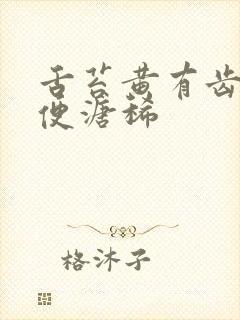 舌苔黄有齿
便溏稀
格沐子